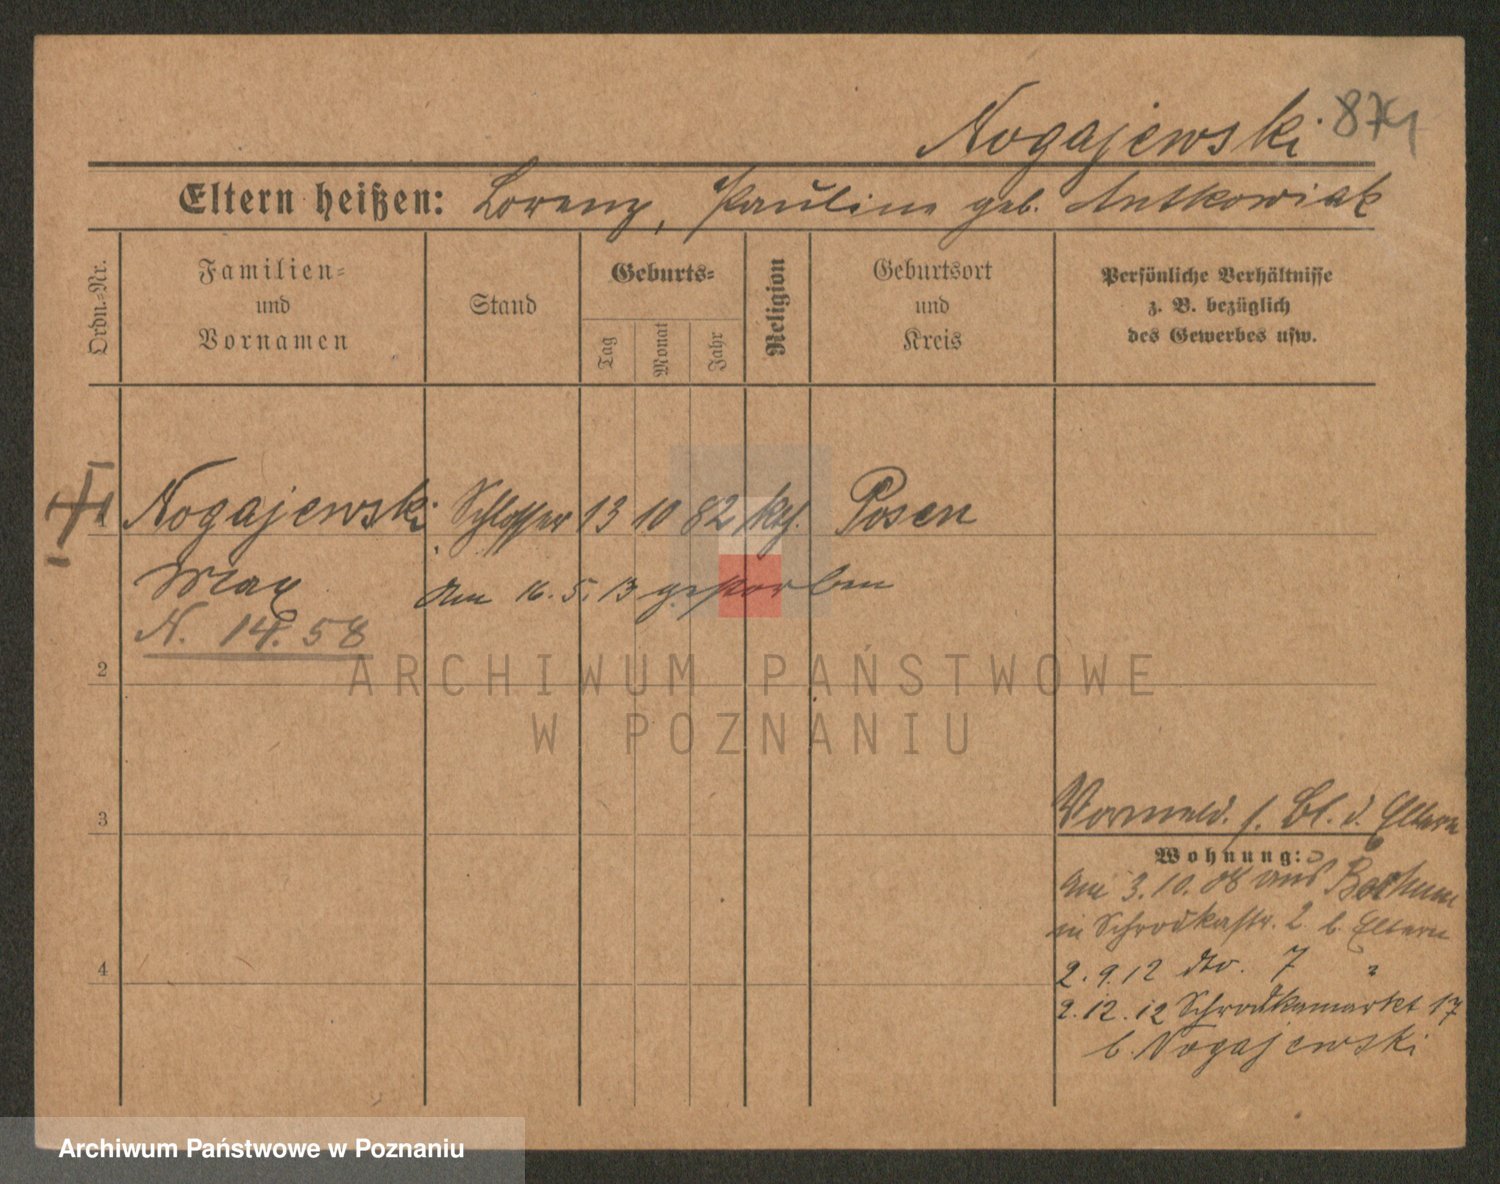 Nogajewski 874
Eltern heißen: Lorenz, Pauline geb. Antkowiak
Ordn.-Nr.
Familien-
und
Vornamen
Stand
Geburts-
Tag
Monat
Jahr
Religion
Geburtsort
und
Kreis
Persönliche Verhältnisse
z. B. bezüglich
des Gewerbes usw.
1 Nogajewski Schlosser 13 10 82 kth. Posen
Max am 16. 5. 13 gestorben
N. 14. 58
2
ARCHIWUM PAŃSTWOWE
W POZNANIU
3
Vormeld. s. Bl. d. Eltern
Wohnung:
am 3. 10. 08 aus Bochum
in Schrodkastr. 2 b. Eltern
4
2. 9. 12 dto. 7 "
2. 12. 12 Schrodkamarkt 17
b. Nogajewski
Archiwum Państwowe w Poznaniu